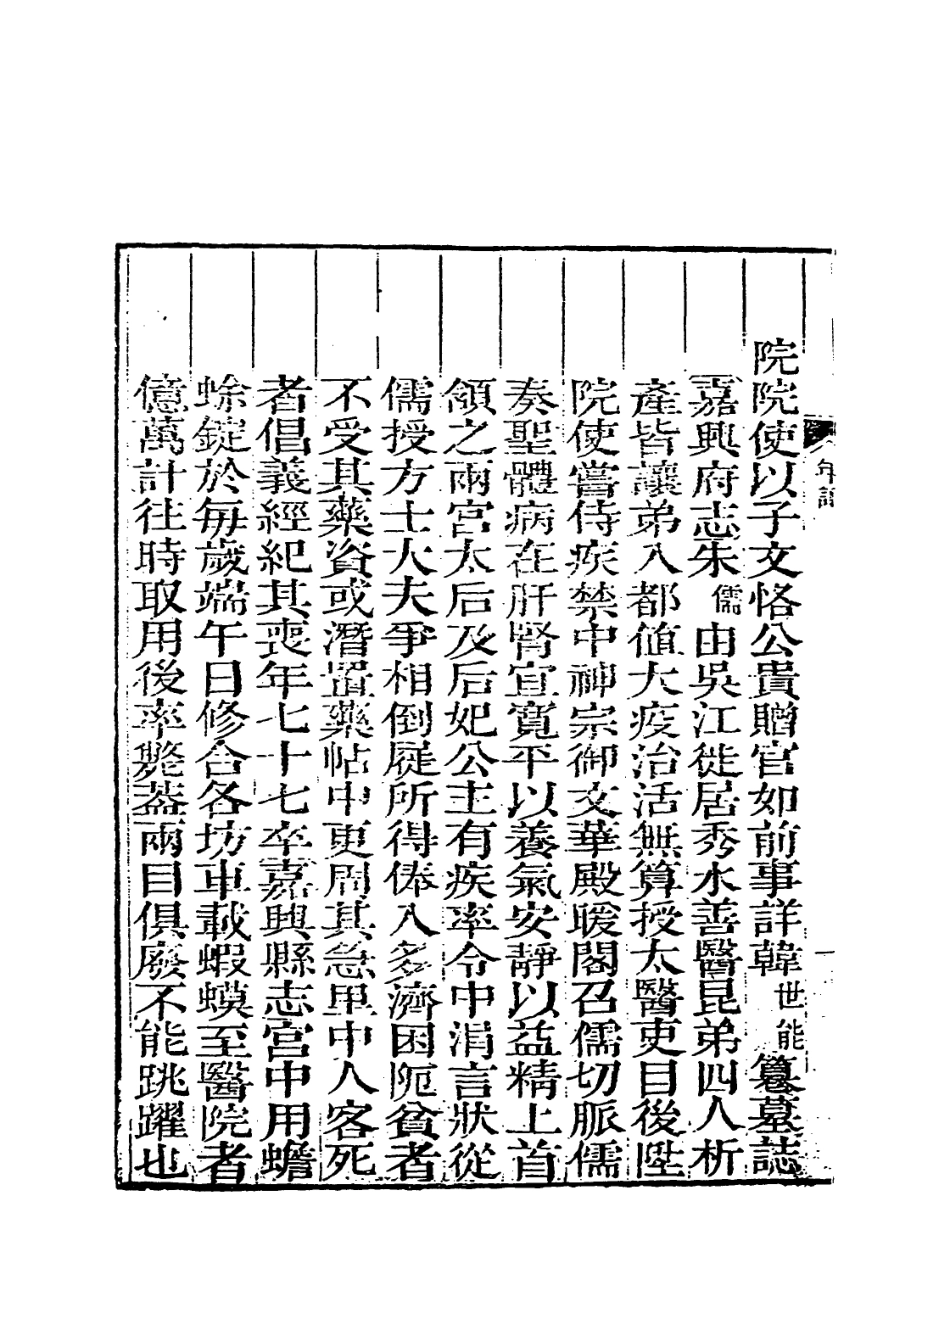 年譜
院院使以子文恪公貴贈官如前事詳韓世能篹墓誌
嘉興府志朱儒由吳江徙居秀水善醫昆弟四人析
產皆讓弟入都値大疫治活無算授太醫吏目後陞
院使嘗侍疾禁中神宗御文華殿暖閣召儒切脈儒
奏聖體病在肝腎宜寬平以養氣安靜以益精上首
頷之兩宮太后及后妃公主有疾率令中涓言狀從
儒授方士大夫爭相倒屣所得俸入多濟困阨貧者
不受其藥資或潛置藥帖中更周其急里中人客死
者倡義經紀其喪年七十七卒嘉興縣志宮中用蟾
蜍錠於每歲端午日修合各坊車載蝦蟆至醫院者
億萬計往時取用後率斃葢兩目俱廢不能跳躍也